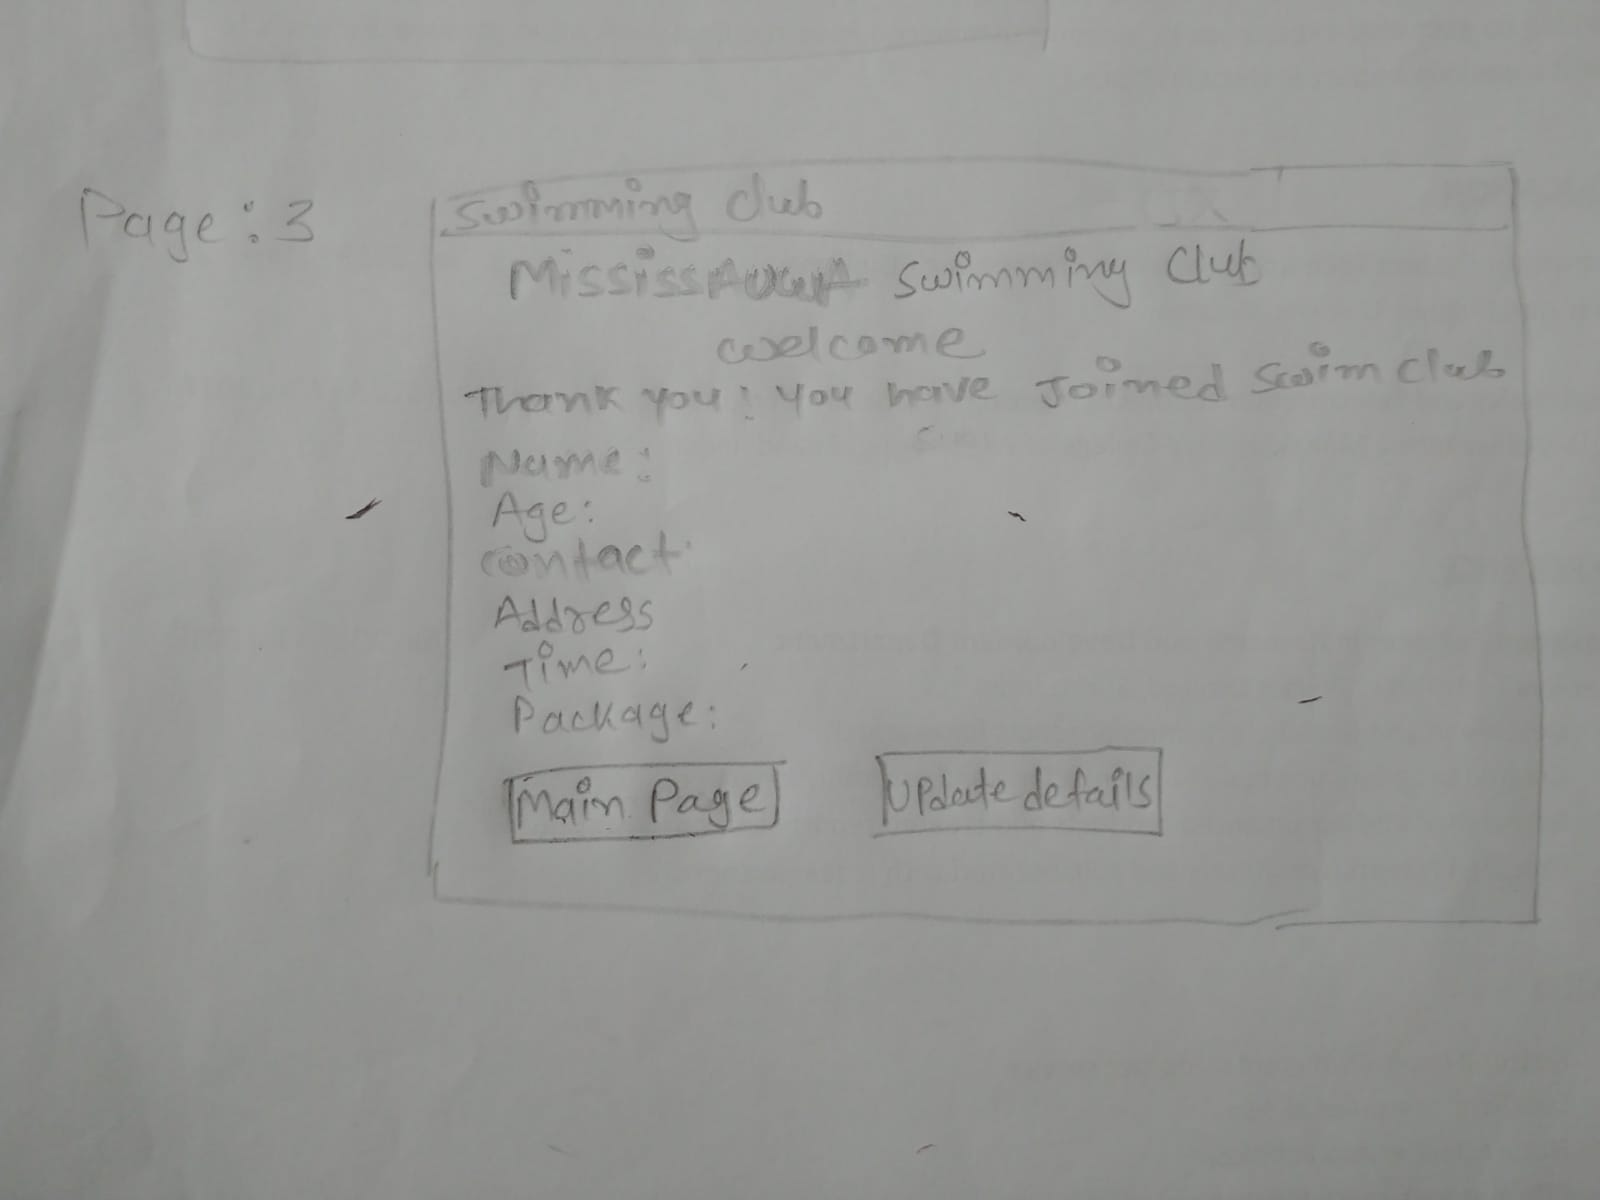 Page: 3
Swimming Club
Mississauga Swimming Club
welcome
Thank you! You have Joined Swim Club
Name:
Age:
Contact:
Address
Time:
Package:
Main Page
Update details